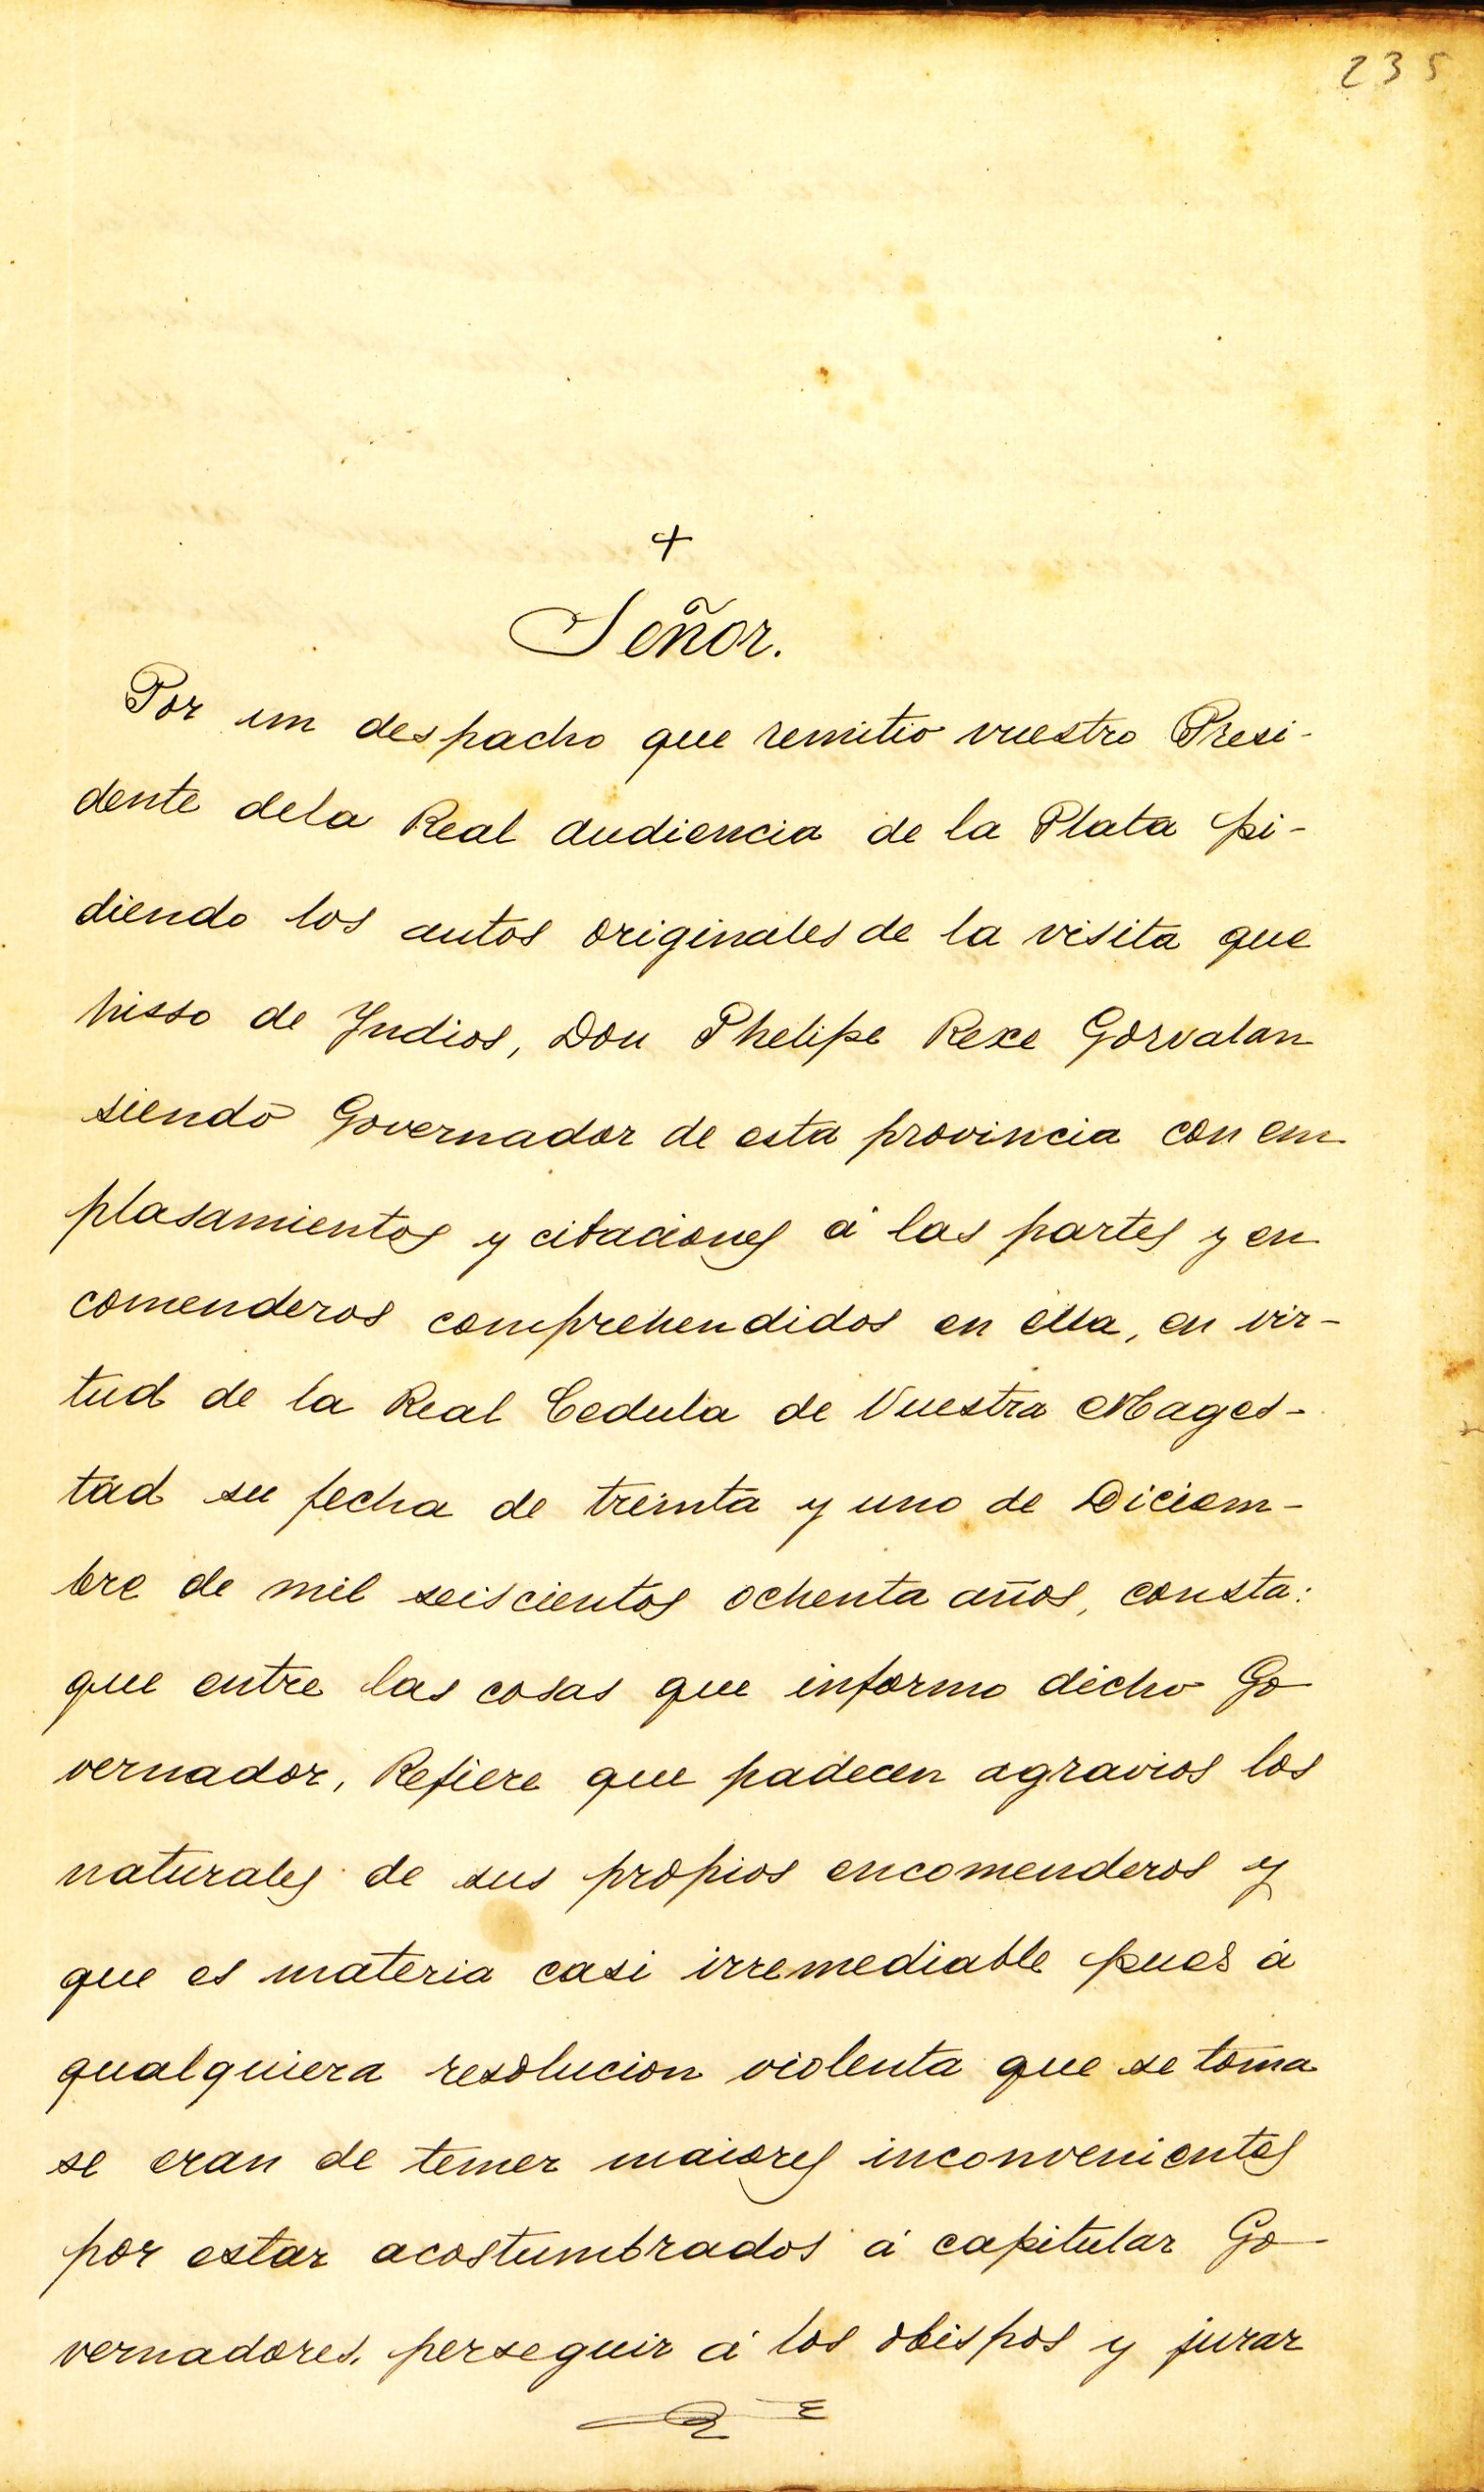 235
+
Señor.
Por un despacho que remitio vuestro Presi-
dente dela Real Audiencia de la Plata pi-
diendo los autos originales de la visita que
hisso de Yndios, Don Phelipe Rexe Gorvalan
siendo Governador de esta provincia con em
plasamientos y citaciones á las partes y en
comenderos comprehendidos en ella, en vir-
tud de la Real Cedula de Vuestra Mages-
tad su fecha de treinta y uno de Diciem-
bre de mil seiscientos ochenta años, consta:
que entre las cosas que informo dicho Go
vernador, Refiere que padecen agravios los
naturales de sus propios encomenderos y
que es materia casi irremediable pues á
qualquiera resolucion violenta que se toma
se eran de temer maiores inconvenientes
por estar acostumbrados á capitular Go
vernadores, perseguir á los obispos y jurar